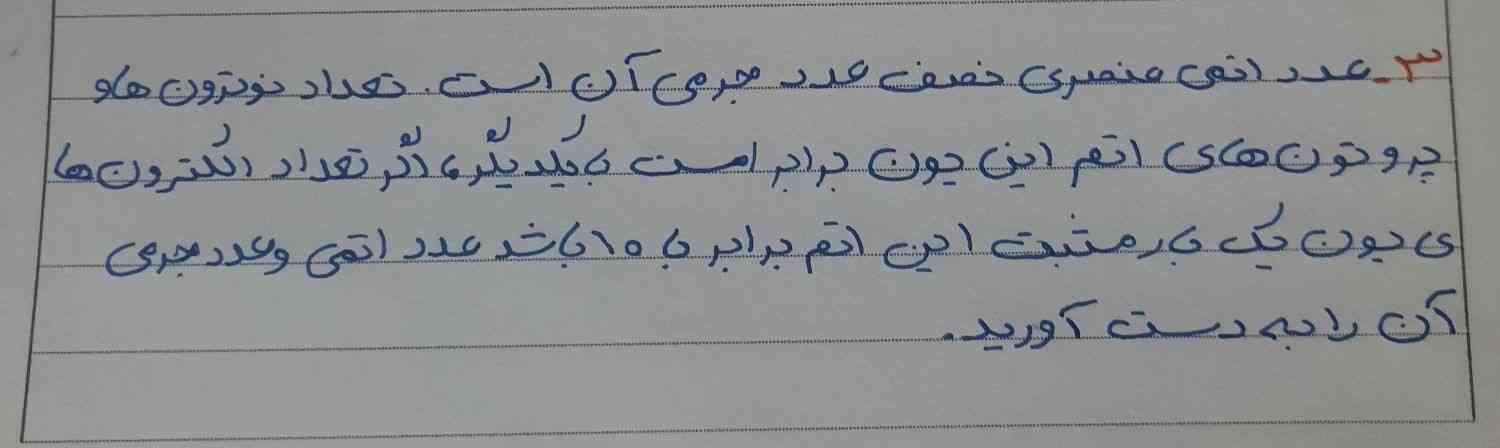 ۳- عدد اتمی عنصری نصف عدد جرمی آن است. تعداد نوترون ها و
پروتون های اتم این یون برابر است با یکدیگر، اگر تعداد الکترون ها
ی یون یک بار مثبت این اتم برابر با ۱۰ باشد عدد اتمی و عدد جرمی
آن را به دست آورید.